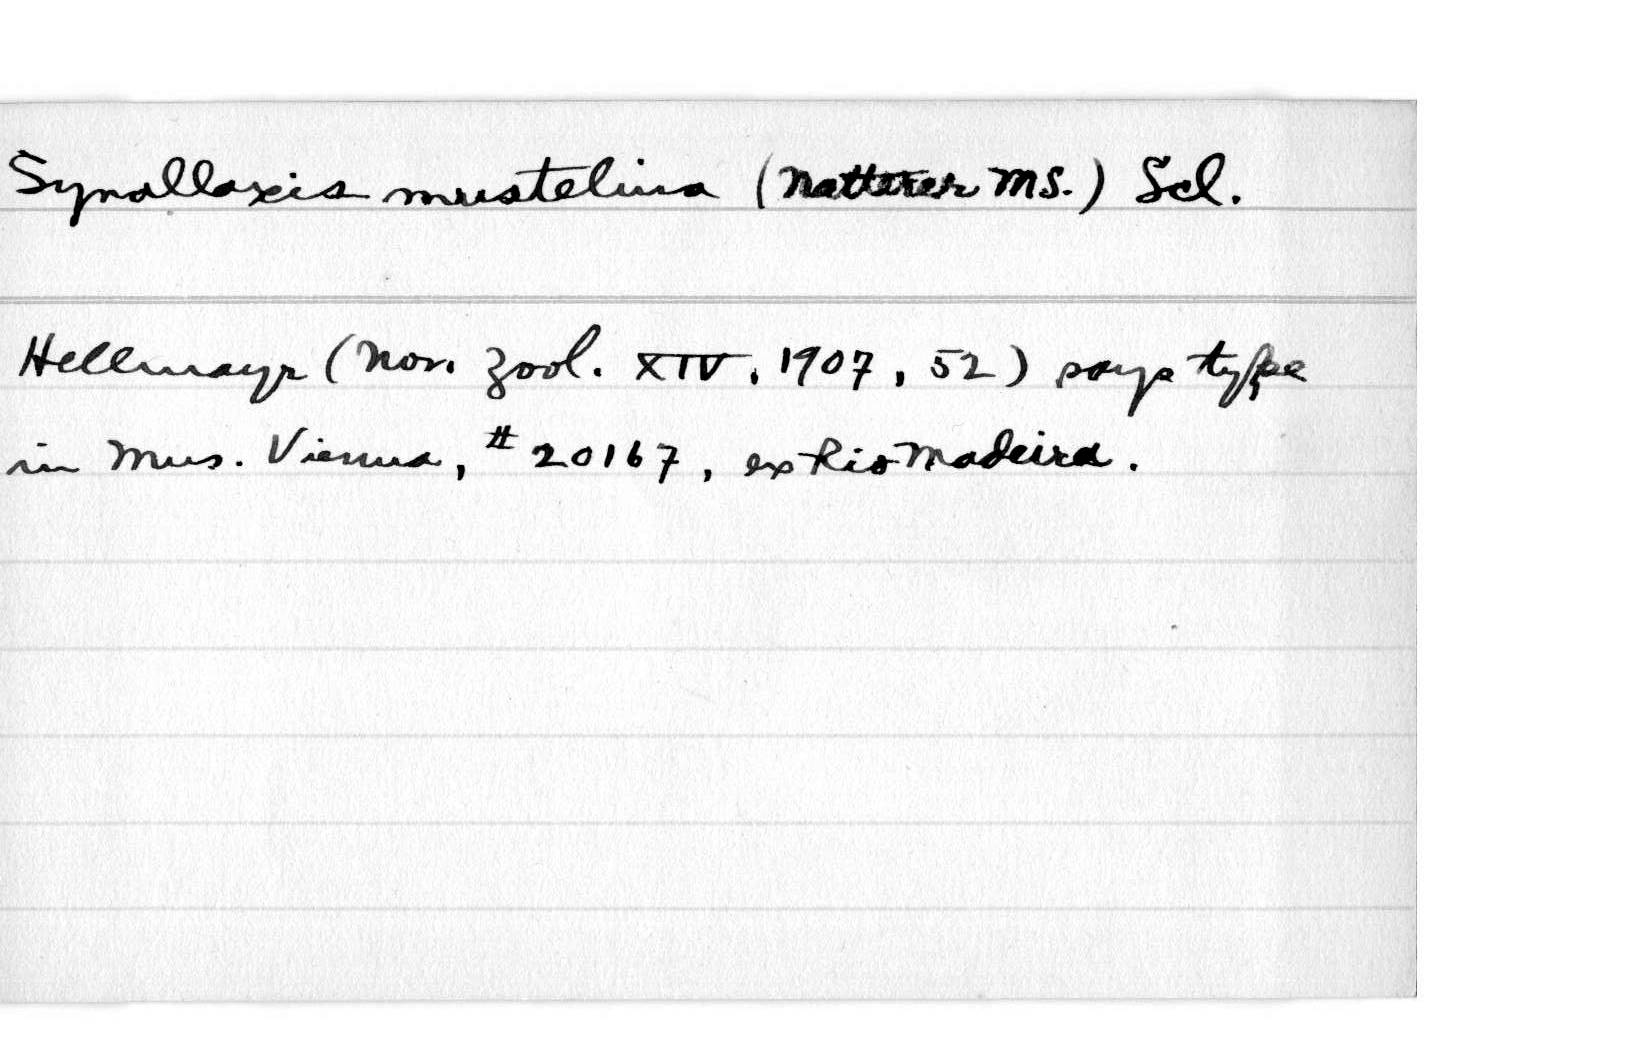 Synallaxis mustelina (Natterer MS.) Scl.
Hellmayr (Nov. Zool. XIV, 1907, 52) says type
in Mus. Vienna, #20167, ex Rio Madeira.